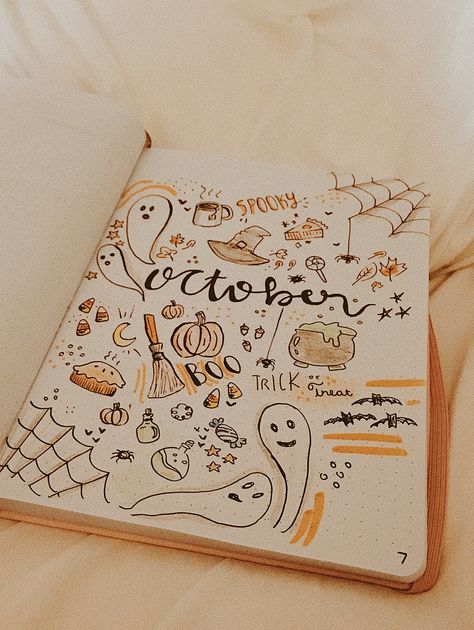 SPOOKY
october
BOO
TRICK or
treat
7